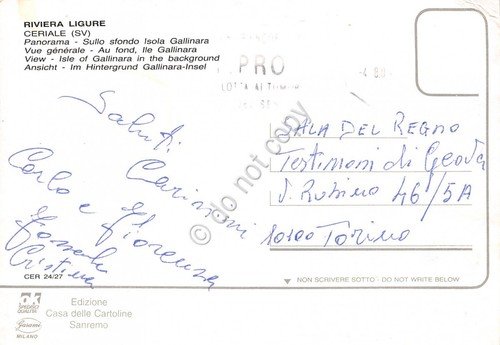 RIVIERA LIGURE
CERIALE (SV)
Panorama - Sullo sfondo Isola Gallinara
Vue générale - Au fond, Ile Gallinara
View - Isle of Gallinara in the background
Ansicht - Im Hintergrund Gallinara-Insel
PRO
LOTTA AI TUMORI
Saluti
Carissimi
Carlo e Fiorenza
Cristina
SALA DEL REGNO
Testimoni di Geova
46/5A
10100 Torino
do not copy
CER 24/27
NON SCRIVERE SOTTO - DO NOT WRITE BELOW
Garami
MILANO
Edizione
Casa delle Cartoline
Sanremo